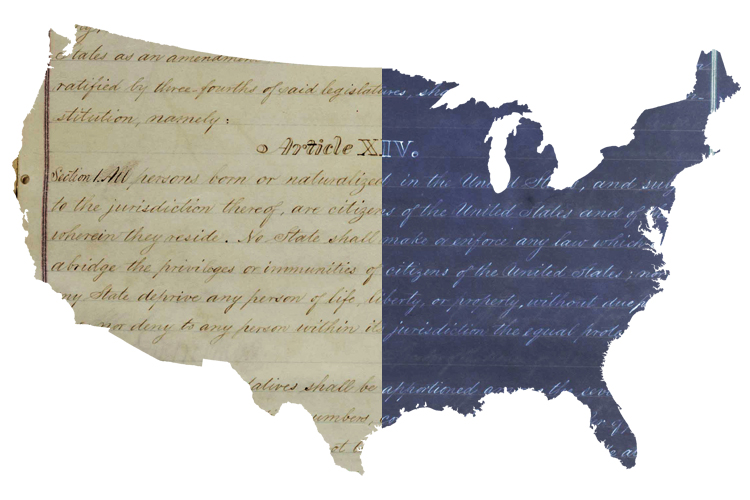 States as an amendment
ratified by three-fourths of said legislatures, sha
stitution, namely:
Article XIV.
Section 1. All persons born or naturalized in the United St, and su
to the jurisdiction thereof, are citizens of the United States and of
wherein they reside. No State shall make or enforce any law which
abridge the privileges or immunities of citizens of the United States; n
ny State deprive any person of life, liberty, or property, without due p
nor deny to any person within its jurisdiction the equal prote
tatives shall be apportioned among the seve
numbers, co